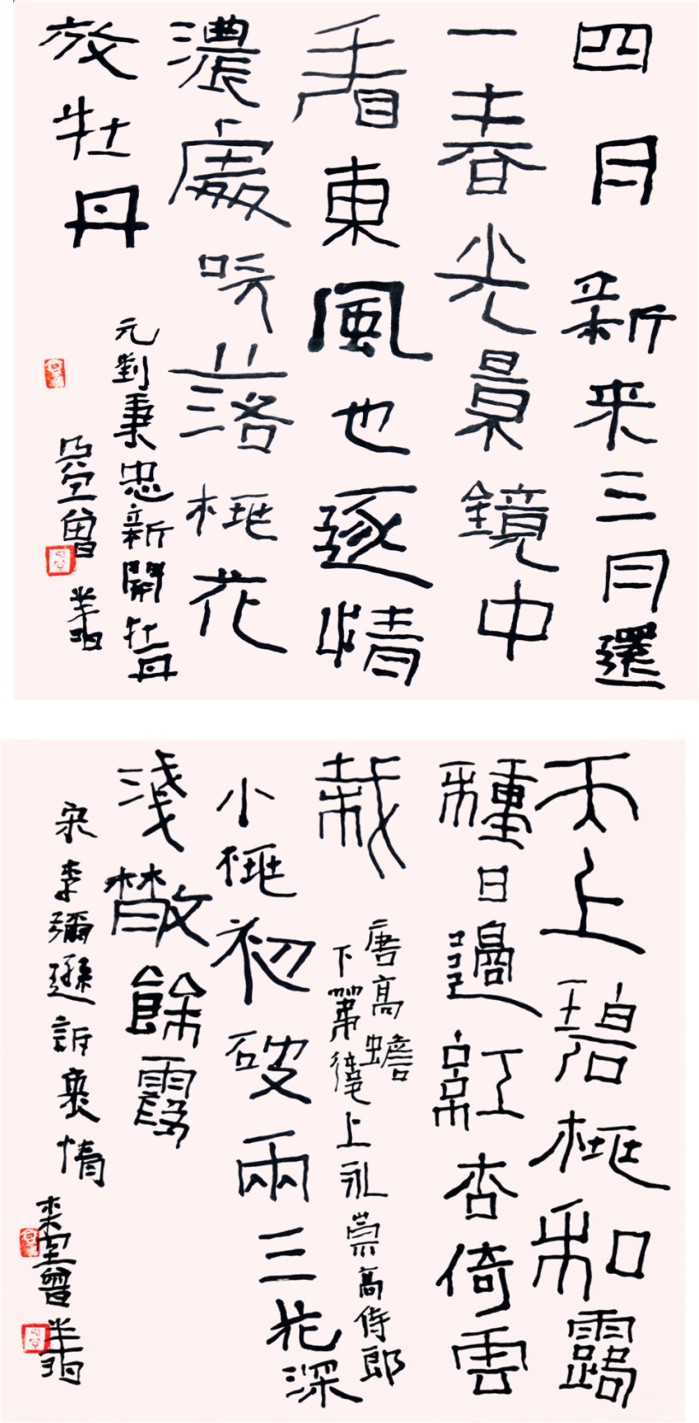 四月新来三月還
一春光景鏡中
看東風也逐情
濃處吹落桃花
放牡丹
元劉秉忠新開牡丹
堂曾翔
天上碧桃和露
種日邊紅杏倚雲
栽
唐高蟾
下第後上永崇高侍郎
小桃初破兩三花深
浅散餘霞
宋李彌遜訴衷情
堂曾翔